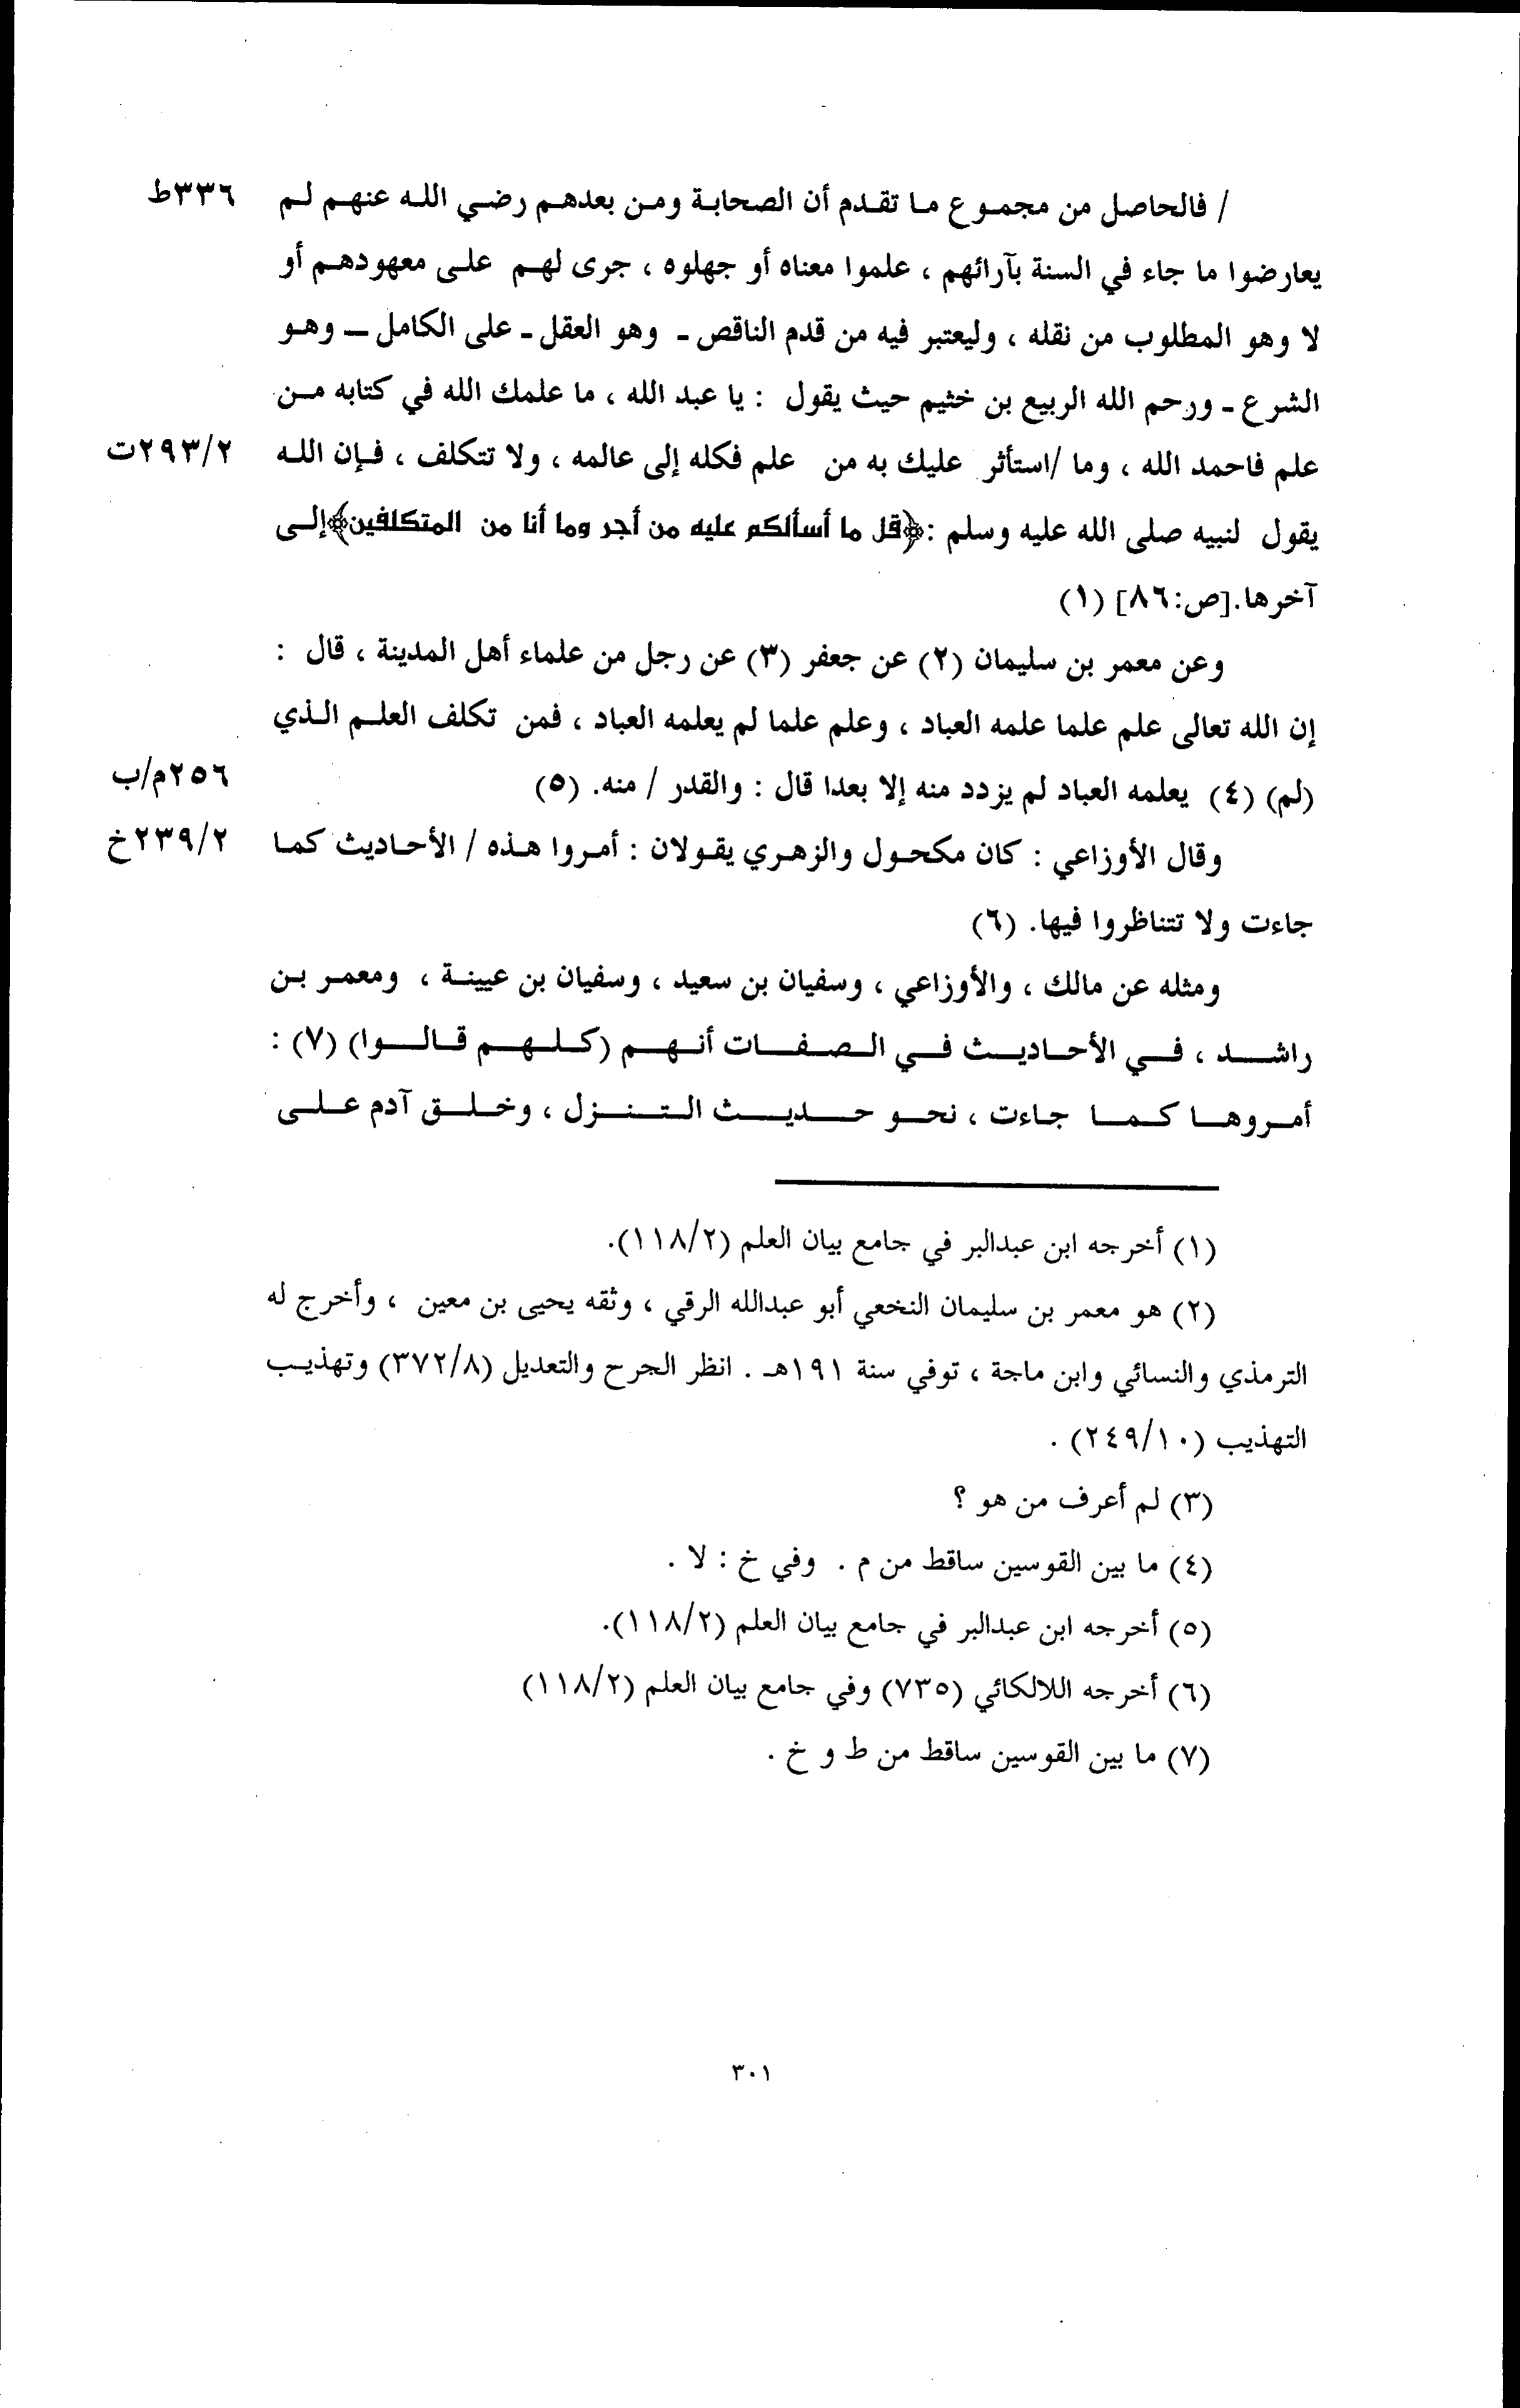 / فالحاصل من مجموع ما تقدم أن الصحابة ومن بعدهم رضي الله عنهم لم ٣٣٦ط
يعارضوا ما جاء في السنة بآرائهم ، علموا معناه أو جهلوه ، جرى لهم على معهودهم أو
لا وهو المطلوب من نقله ، وليعتبر فيه من قدم الناقص ـ وهو العقل ـ على الكامل ـ وهو
الشرع ـ ورحم الله الربيع بن خثيم حيث يقول : يا عبد الله ، ما علمك الله في كتابه من
علم فاحمد الله ، وما /استأثر عليك به من علم فكله إلى عالمه ، ولا تتكلف ، فإن الله ٢٩٣/٢ت
يقول لنبيه صلى الله عليه وسلم :﴿قل ما أسألكم عليه من أجر وما أنا من المتكلفين﴾إلى
آخرها.[ص:٨٦] (١)
وعن معمر بن سليمان (٢) عن جعفر (٣) عن رجل من علماء أهل المدينة ، قال :
إن الله تعالى علم علما علمه العباد ، وعلم علما لم يعلمه العباد ، فمن تكلف العلم الذي
(لم) (٤) يعلمه العباد لم يزدد منه إلا بعدا قال : والقدر / منه. (٥) ٢٥٦م/ب
وقال الأوزاعي : كان مكحول والزهري يقولان : أمروا هذه / الأحاديث كما ٢٣٩/٢خ
جاءت ولا تتناظروا فيها. (٦)
ومثله عن مالك ، والأوزاعي ، وسفيان بن سعيد ، وسفيان بن عيينة ، ومعمر بن
راشد ، في الأحاديث في الصفات أنهم (كلهم قالوا) (٧) :
أمروها كما جاءت ، نحو حديث التنزل ، وخلق آدم على
(١) أخرجه ابن عبدالبر في جامع بيان العلم (١١٨/٢).
(٢) هو معمر بن سليمان النخعي أبو عبدالله الرقي ، وثقه يحيى بن معين ، وأخرج له
الترمذي والنسائي وابن ماجة ، توفي سنة ١٩١هـ . انظر الجرح والتعديل (٣٧٢/٨) وتهذيب
التهذيب (٢٤٩/١٠) .
(٣) لم أعرف من هو ؟
(٤) ما بين القوسين ساقط من م . وفي خ : لا .
(٥) أخرجه ابن عبدالبر في جامع بيان العلم (١١٨/٢).
(٦) أخرجه اللالكائي (٧٣٥) وفي جامع بيان العلم (١١٨/٢)
(٧) ما بين القوسين ساقط من ط و خ .
٣٠١